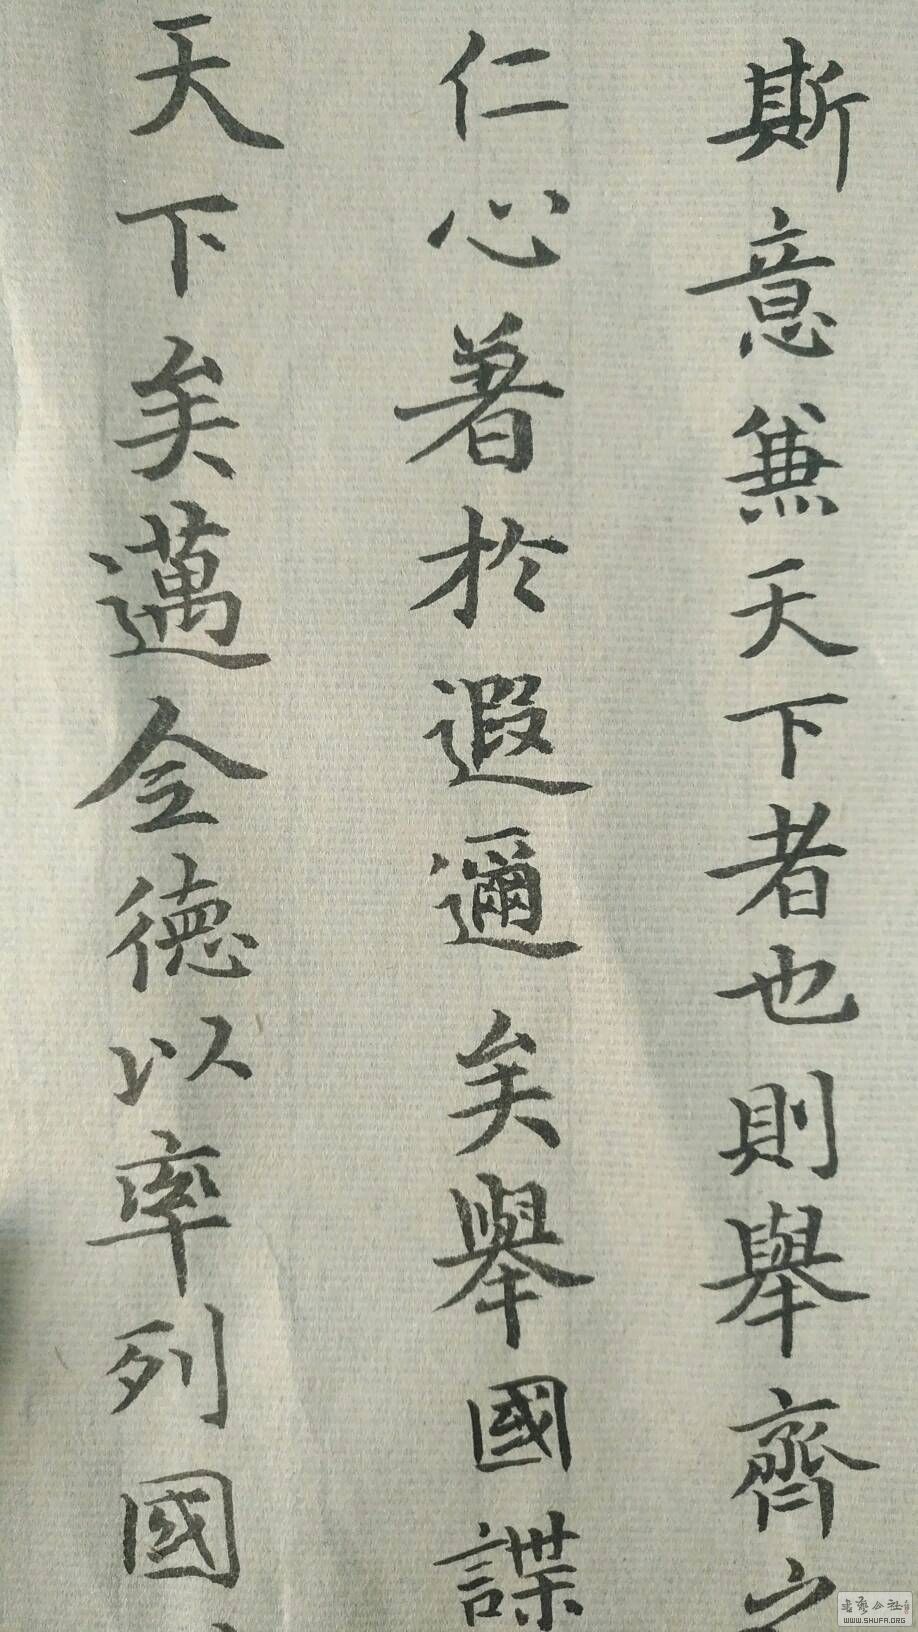 斯意兼天下者也則舉齊之
仁心著於遐邇矣舉國諜
天下矣邁令德以率列國
書藝公社
WWW.SHUFA.ORG